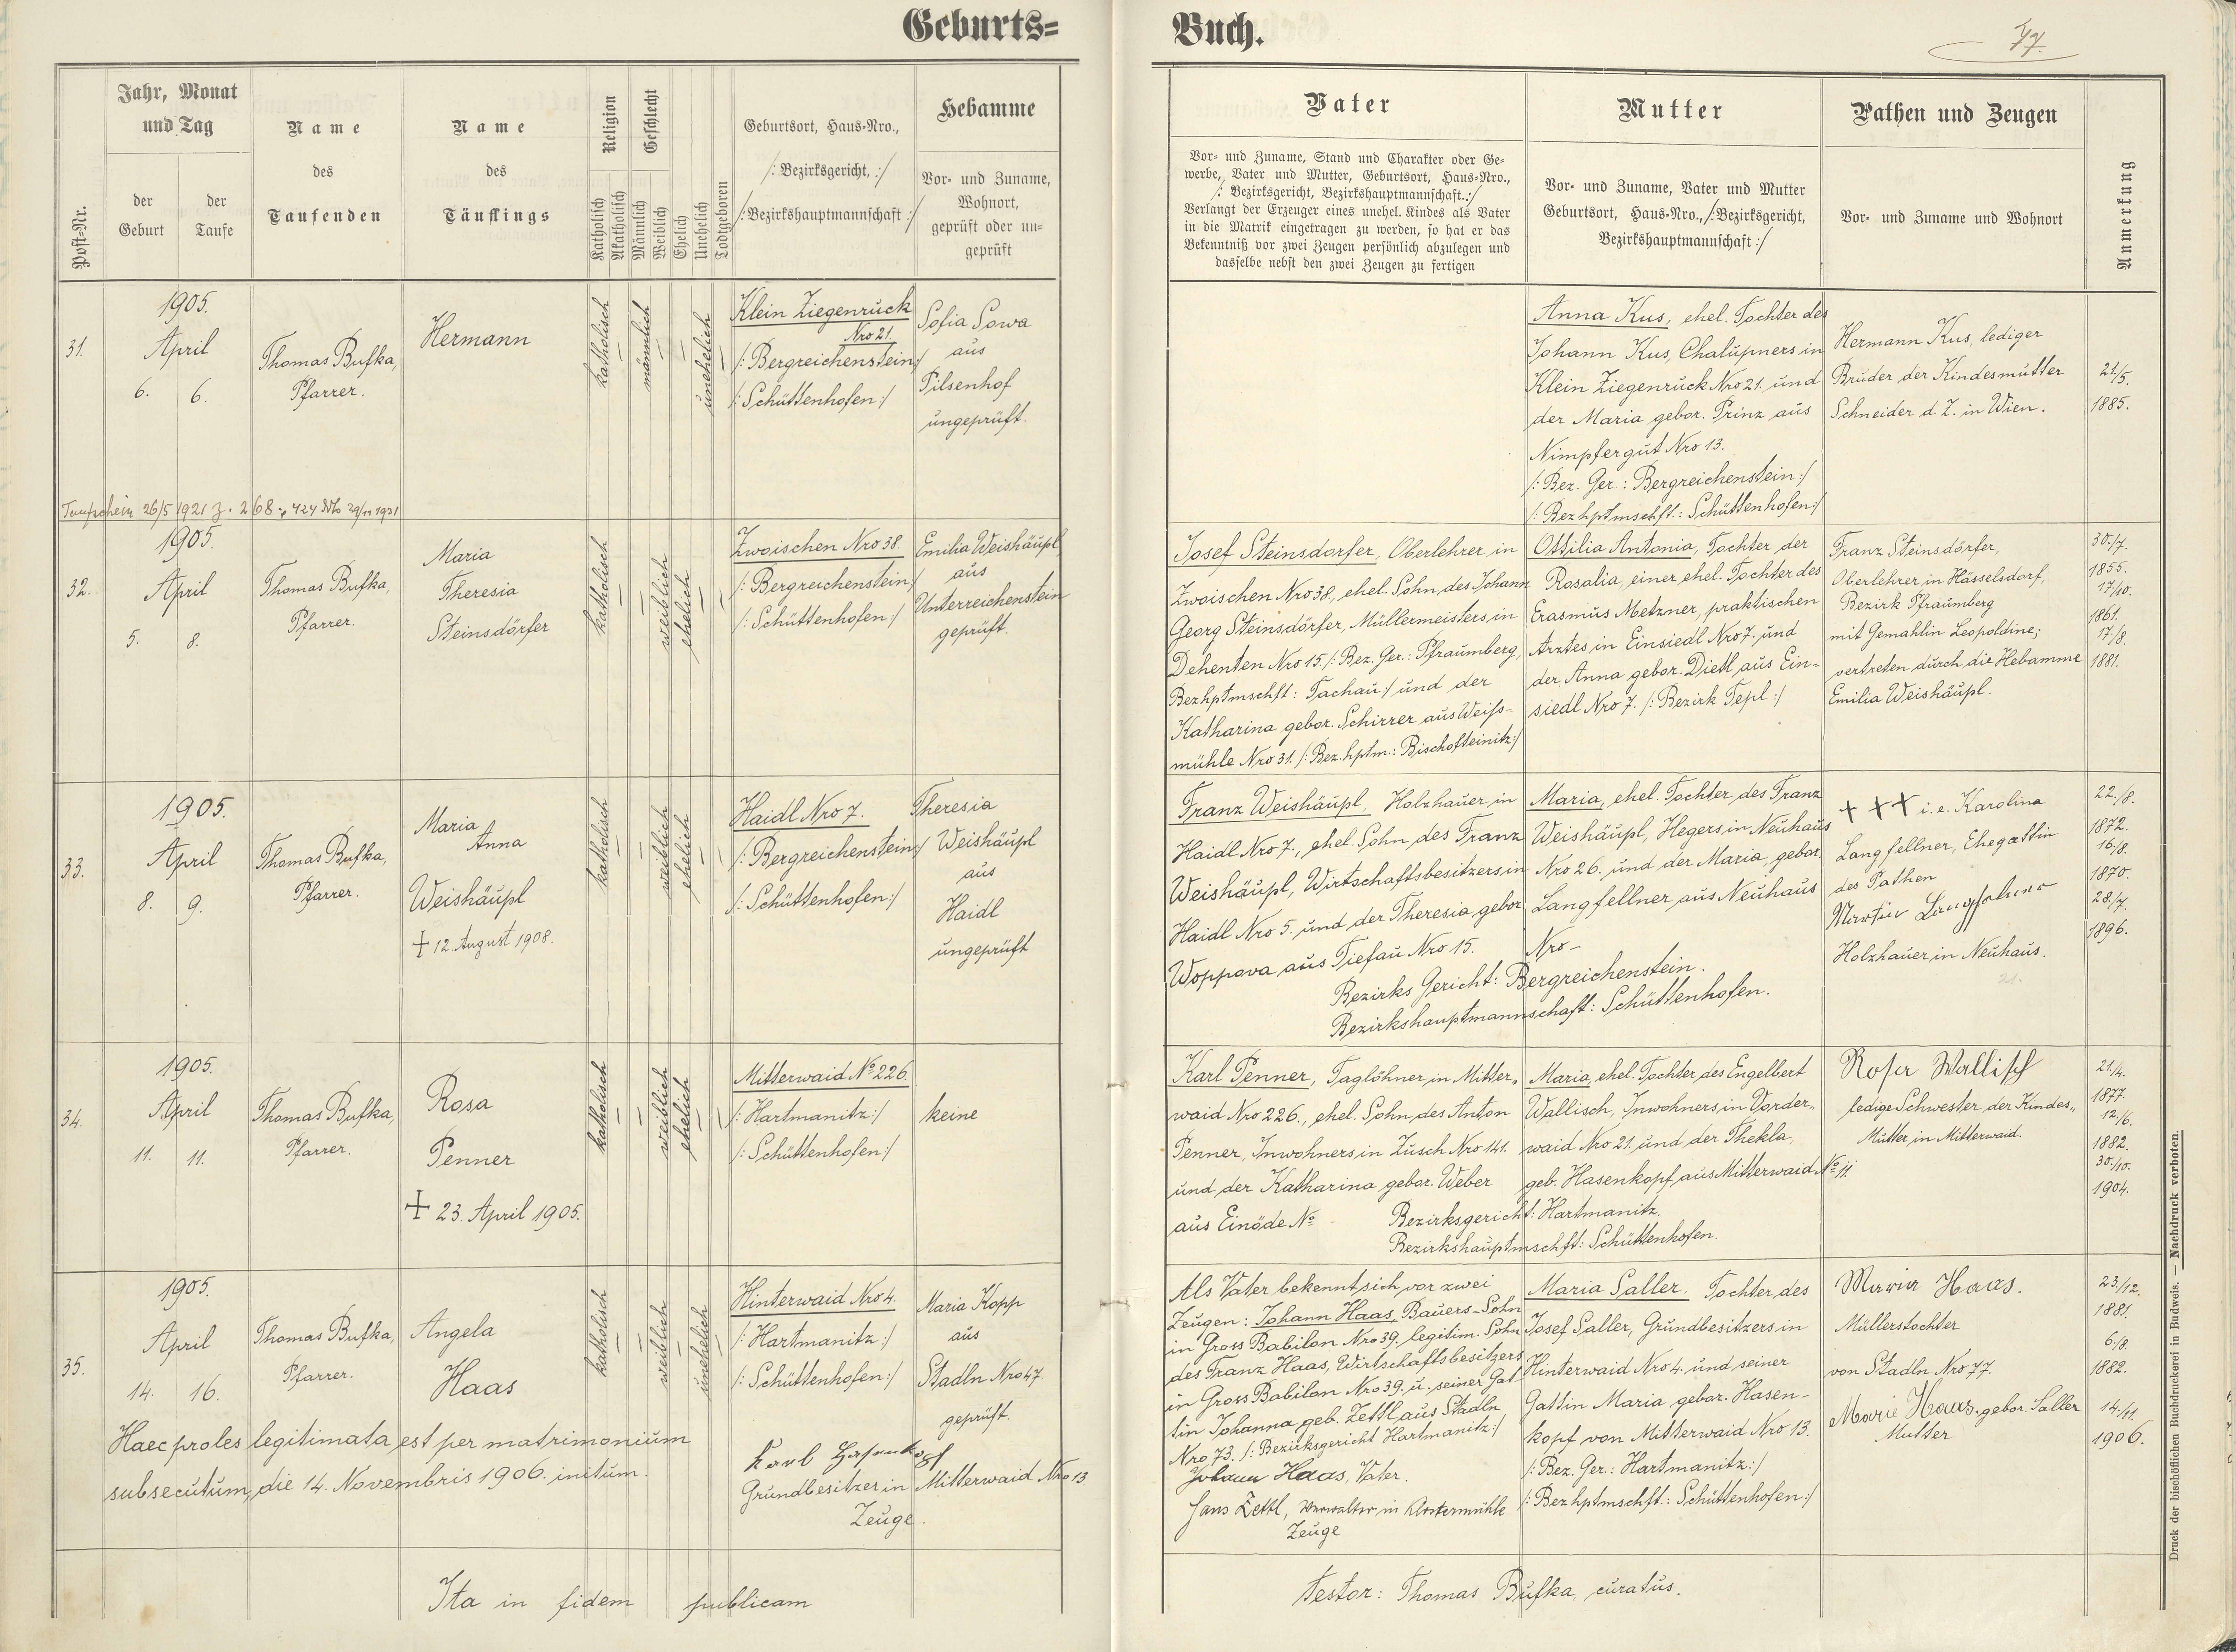 Geburts=
Buch.
77.
Post=Nr.
Jahr, Monat
und Tag
der
Geburt
der
Taufe
Name
des
Taufenden
Name
des
Täuflings
Religion
Katholisch
Akatholisch
Geschlecht
Männlich
Weiblich
Ehelich
Unehelich
Todtgeboren
Geburtsort, Haus=Nro.,
/: Bezirksgericht, :/
/: Bezirkshauptmannschaft :/
Hebamme
Vor= und Zuname,
Wohnort,
geprüft oder un=
geprüft
Vater
Vor= und Zuname, Stand und Charakter oder Ge=
werbe, Vater und Mutter, Geburtsort, Haus=Nro.,
/: Bezirksgericht, Bezirkshauptmannschaft. :/
Verlangt der Erzeuger eines unehel. Kindes als Vater
in die Matrik eingetragen zu werden, so hat er das
Bekenntniß vor zwei Zeugen persönlich abzulegen und
dasselbe nebst den zwei Zeugen zu fertigen
Mutter
Vor= und Zuname, Vater und Mutter
Geburtsort, Haus=Nro., /: Bezirksgericht,
Bezirkshauptmannschaft :/
Pathen und Zeugen
Vor= und Zuname und Wohnort
Anmerkung
31.
1905.
April
6. 6.
Thomas Bufka,
Pfarrer.
Hermann
katholisch
männlich
unehelich
Klein Ziegenruck
Nro 21.
/: Bergreichenstein :/
/: Schüttenhofen :/
Sofia Sowa
aus
Pilsenhof
ungeprüft.
Anna Kus, ehel. Tochter des
Johann Kus, Chalupners in
Klein Ziegenruck Nro 21. und
der Maria gebor. Prinz aus
Nimpfergut Nro 13.
/: Bez. Ger.: Bergreichenstein :/
/: Bezhptmschft.: Schüttenhofen :/
Hermann Kus, lediger
Bruder der Kindesmutter
Schneider d. Z. in Wien.
21./5.
1885.
Taufschein 26/5 1921 z. 268
32.
1905.
April
5. 8.
Thomas Bufka,
Pfarrer.
Maria
Theresia
Steinsdörfer
katholisch
weiblich
ehelich
Zwoischen Nro 38.
/: Bergreichenstein :/
/: Schüttenhofen :/
Emilia Weishäupl
aus
Unterreichenstein
geprüft.
Josef Steinsdorfer, Oberlehrer in
Zwoischen Nro 38., ehel. Sohn des Johann
Georg Steinsdörfer, Müllermeisters in
Dehenten Nro 15. /: Bez. Ger.: Pfraumberg,
Bezhptmschft: Tachau :/ und der
Katharina gebor. Schirrer aus Weiss-
mühle Nro 31. /: Bez. hptm.: Bischofteinitz :/
Ottilia Antonia, Tochter der
Rosalia, einer ehel. Tochter des
Erasmus Metzner, praktischen
Arztes in Einsiedl Nro 7. und
der Anna gebor. Dietl aus Ein=
siedl Nro 7. /: Bezirk Tepl :/
Franz Steinsdörfer,
Oberlehrer in Hässelsdorf,
Bezirk Pfraumberg
mit Gemahlin Leopoldine;
vertreten durch die Hebamme
Emilia Weishäupl.
30./7.
1855.
17/10.
1861.
17./8.
1881.
33.
1905.
April
8. 9.
Thomas Bufka,
Pfarrer.
Maria
Anna
Weishäupl
+ 12. August 1908.
katholisch
weiblich
ehelich
Haidl Nro 7.
/: Bergreichenstein :/
/: Schüttenhofen :/
Theresia
Weishäupl
aus
Haidl
ungeprüft
Franz Weishäupl, Holzhauer in
Haidl Nro 7., ehel. Sohn des Franz
Weishäupl, Wirtschaftsbesitzers in
Haidl Nro 5. und der Theresia gebor
Woppava aus Tiefau Nro 15.
Maria, ehel. Tochter des Franz
Weishäupl, Hegers in Neuhaus
Nro 26. und der Maria, gebor.
Langfellner aus Neuhaus
Nro -
Bezirks Gericht: Bergreichenstein.
Bezirkshauptmannschaft: Schüttenhofen.
+ + + i. e. Karolina
Langfellner, Ehegattin
des Pathen
Martin
Holzhauer in Neuhaus.
22./8.
1872.
16/8.
1870.
28./7.
1896.
34.
1905.
April
11. 11.
Thomas Bufka,
Pfarrer.
Rosa
Penner
+ 23. April 1905.
katholisch
weiblich
ehelich
Mitterwaid No 226.
/: Hartmanitz :/
/: Schüttenhofen :/
keine
Karl Penner, Taglöhner in Mitter„
waid Nro 226., ehel. Sohn des Anton
Penner, Inwohners in Zusch Nro 141.
und der Katharina gebor. Weber
aus Einöde No -
Maria, ehel. Tochter des Engelbert
Wallisch, Inwohners in Vorder„
waid Nro 21. und der Thekla,
geb. Hasenkopf aus Mitterwaid No 11.
Bezirksgericht: Hartmanitz.
Bezirkshauptmschft: Schüttenhofen.
Rosa Wallisch
ledige Schwester der Kindes„
Mutter in Mitterwaid.
21/4.
1877.
12./6.
1882.
30./10.
1904.
35.
1905.
April
14. 16.
Thomas Bufka,
Pfarrer.
Angela
Haas
katholisch
weiblich
unehelich
Hinterwaid Nro 4.
/: Hartmanitz :/
/: Schüttenhofen :/
Maria Kopp
aus
Stadln Nro 47
geprüft.
Haec proles legitimata est per matrimonium
subsecutum, die 14. Novembris 1906. initum.
Karl Hasenkopf
Grundbesitzer in Mitterwaid Nro 13
Zeuge.
Als Vater bekennt sich vor zwei
Zeugen: Johann Haas, Bauers-Sohn
in Gross Babilon Nro 39., legitim. Sohn
des Franz Haas, Wirtschaftsbesitzers
in Gross Babilon Nro 39. u. seiner Gat
tin Johanna geb. Zettl aus Stadln
Nro 73. /: Bezirksgericht Hartmanitz :/
Johann Haas, Vater.
Hans Zettl, Verwalter in Klostermühle
Zeuge
Maria Saller. Tochter des
Josef Saller, Grundbesitzers in
Hinterwaid Nro 4. und seiner
Gattin Maria gebor. Hasen-
kopf von Mitterwaid Nro 13.
/: Bez. Ger.: Hartmanitz :/
/: Bezhptmschft.: Schüttenhofen :/
Maria Haas.
Müllerstochter
von Stadln Nro 77.
Marie Haas, gebor. Saller
Mutter
23./12.
1881.
6./8.
1882.
14./11.
1906.
Ita in fidem publicam
Testor: Thomas Bufka, curatus.
Druck der bischöflichen Buchdruckerei in Budweis. — Nachdruck verboten.